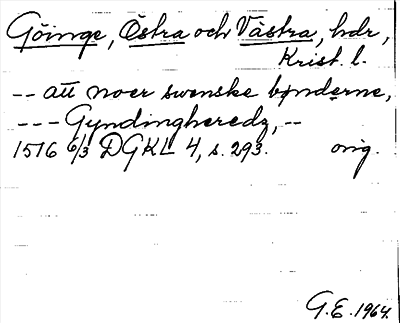 Göinge, Östra och Västra, hdr,
Krist. l.
-- att noer swenske bønderne,
--- Gyndingheredz, --
1516 6/3 DGKL 4, s. 293. orig.
G.E. 1964.